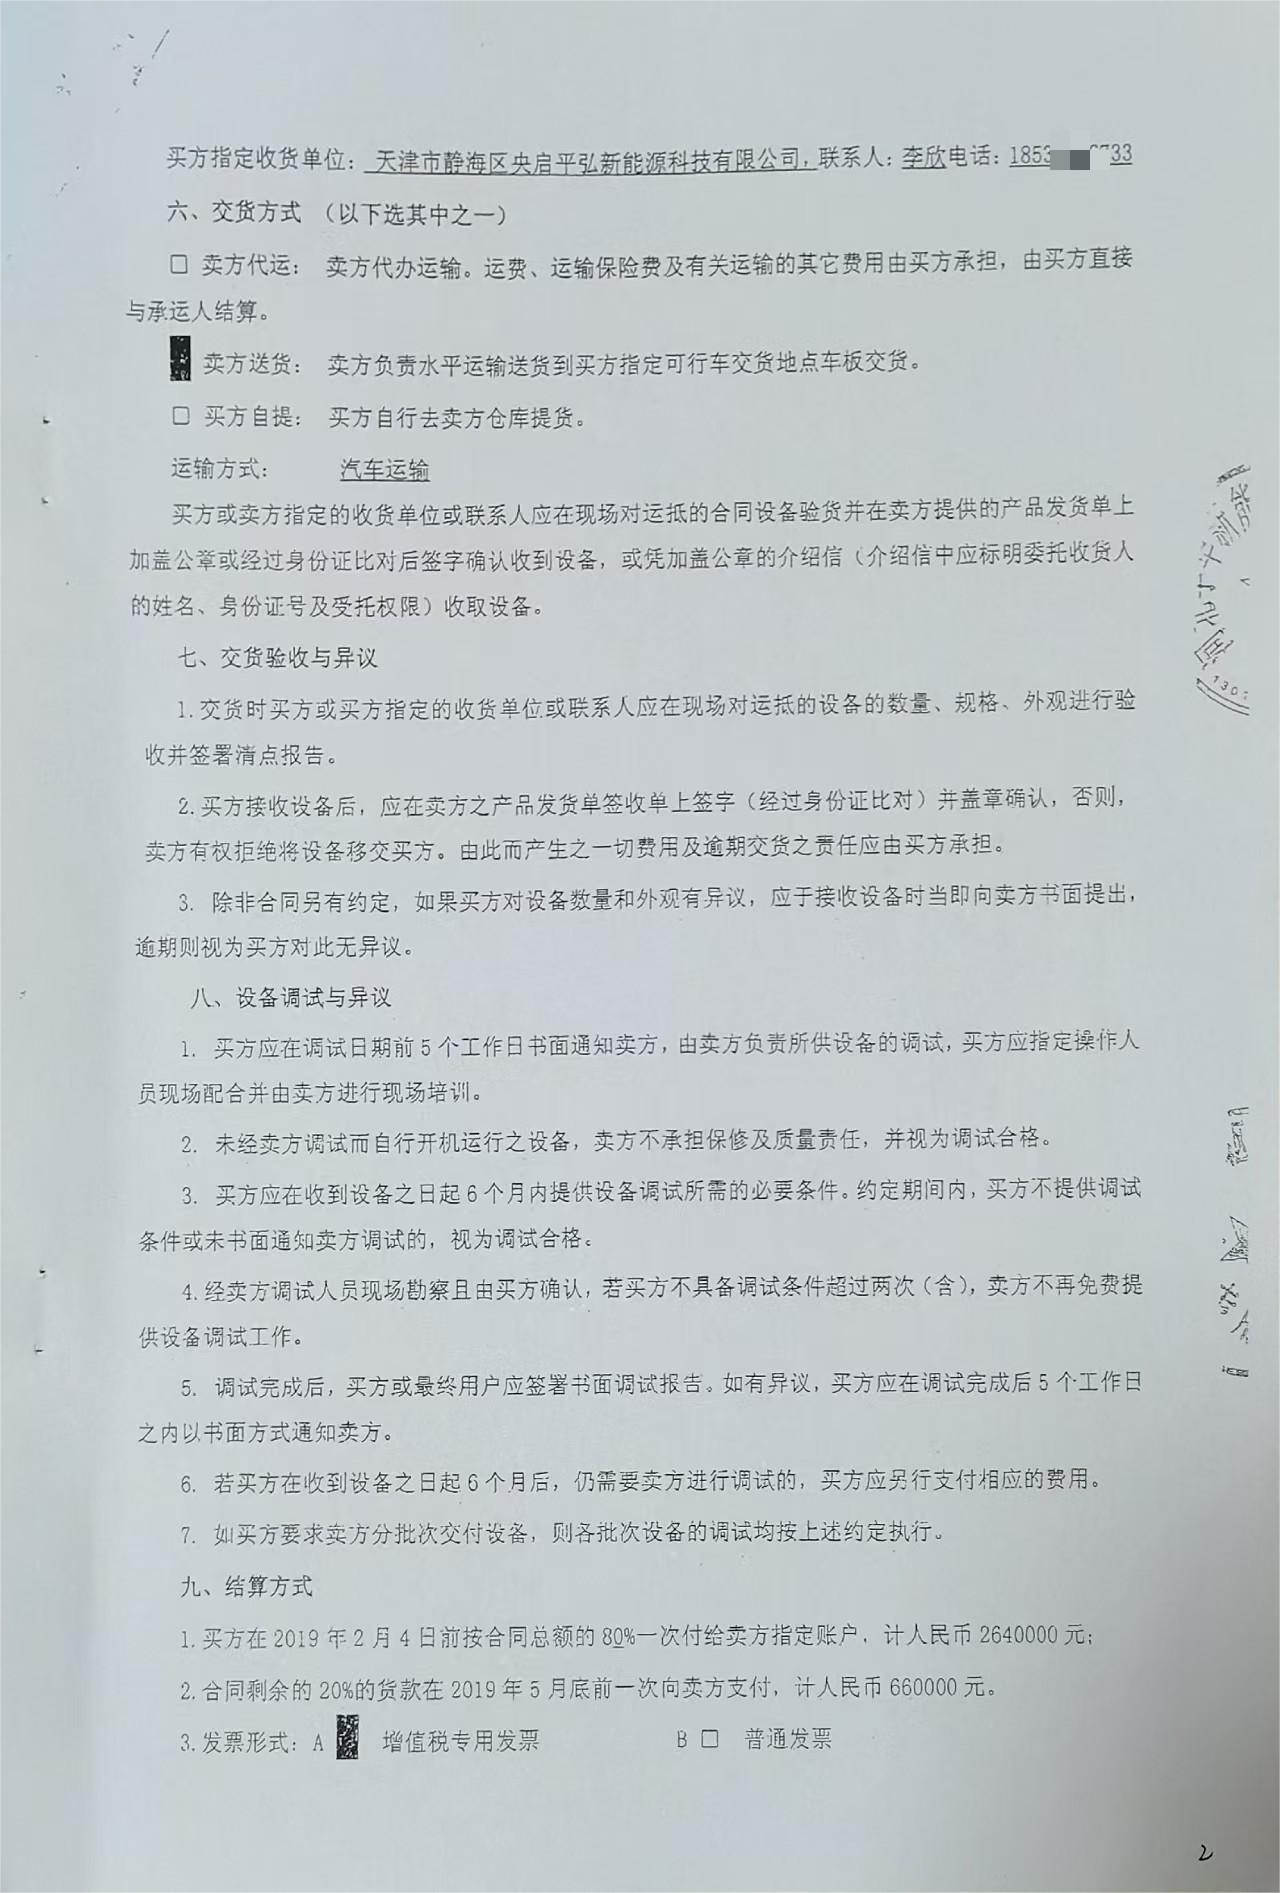 买方指定收货单位：天津市静海区央启平弘新能源科技有限公司，联系人：李欣电话：185333
六、交货方式 （以下选其中之一）
□ 卖方代运： 卖方代办运输。运费、运输保险费及有关运输的其它费用由买方承担，由买方直接
与承运人结算。
■ 卖方送货： 卖方负责水平运输送货到买方指定可行车交货地点车板交货。
□ 买方自提： 买方自行去卖方仓库提货。
运输方式： 汽车运输
买方或卖方指定的收货单位或联系人应在现场对运抵的合同设备验货并在卖方提供的产品发货单上
加盖公章或经过身份证比对后签字确认收到设备，或凭加盖公章的介绍信（介绍信中应标明委托收货人
的姓名、身份证号及受托权限）收取设备。
七、交货验收与异议
1.交货时买方或买方指定的收货单位或联系人应在现场对运抵的设备的数量、规格、外观进行验
收并签署清点报告。
2.买方接收设备后，应在卖方之产品发货单签收单上签字（经过身份证比对）并盖章确认，否则，
卖方有权拒绝将设备移交买方。由此而产生之一切费用及逾期交货之责任应由买方承担。
3. 除非合同另有约定，如果买方对设备数量和外观有异议，应于接收设备时当即向卖方书面提出，
逾期则视为买方对此无异议。
八、设备调试与异议
1. 买方应在调试日期前5个工作日书面通知卖方，由卖方负责所供设备的调试，买方应指定操作人
员现场配合并由卖方进行现场培训。
2. 未经卖方调试而自行开机运行之设备，卖方不承担保修及质量责任，并视为调试合格。
3. 买方应在收到设备之日起6个月内提供设备调试所需的必要条件。约定期间内，买方不提供调试
条件或未书面通知卖方调试的，视为调试合格。
4.经卖方调试人员现场勘察且由买方确认，若买方不具备调试条件超过两次（含），卖方不再免费提
供设备调试工作。
5. 调试完成后，买方或最终用户应签署书面调试报告。如有异议，买方应在调试完成后5个工作日
之内以书面方式通知卖方。
6. 若买方在收到设备之日起6个月后，仍需要卖方进行调试的，买方应另行支付相应的费用。
7. 如买方要求卖方分批次交付设备，则各批次设备的调试均按上述约定执行。
九、结算方式
1.买方在2019年2月4日前按合同总额的80%一次付给卖方指定账户，计人民币2640000元；
2.合同剩余的20%的货款在2019年5月底前一次向卖方支付，计人民币660000元。
3.发票形式：A ■ 增值税专用发票 B □ 普通发票
2